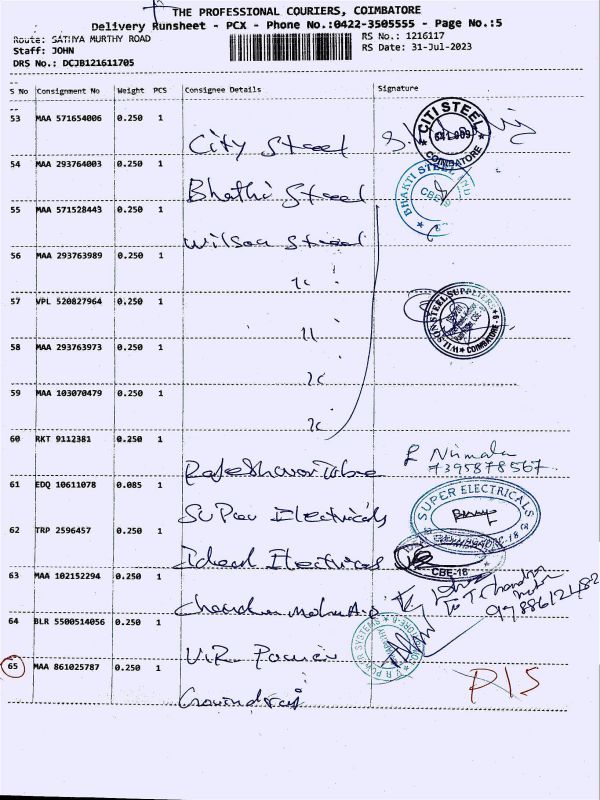 THE PROFESSIONAL COURIERS, COIMBATORE
Delivery Runsheet - PCX - Phone No.:0422-3505555 - Page No.:5
Route: SATHYA MURTHY ROAD RS No.: 1216117
Staff: JOHN RS Date: 31-Jul-2023
DRS No.: DCJB121611705
S No Consignment No Weight PCS Consignee Details Signature
53 MAA 571654006 0.250 1
City Steel
CITI STEEL COIMBATORE
54 MAA 293764003 0.250 1
Bhathi Steel
BHAKTI STEEL CBE-9
55 MAA 571528443 0.250 1
Wilson Steel
56 MAA 293763989 0.250 1
57 VPL 520827964 0.250 1
WILSON STEEL SUPPLIERS COIMBATORE-9
58 MAA 293763973 0.250 1
59 MAA 103070479 0.250 1
60 RKT 9112381 0.250 1
Rajeshwari Tube
Nirmala
7395878567
61 EDQ 10611078 0.085 1
Super Electricals
SUPER ELECTRICALS
62 TRP 2596457 0.250 1
Ideal Electricals
CBE-18
63 MAA 102152294 0.250 1
Chandra
64 BLR 5500514056 0.250 1
V.R. Power
V R POWER SYSTEMS
65 MAA 861025787 0.250 1
Govindraj
P/S